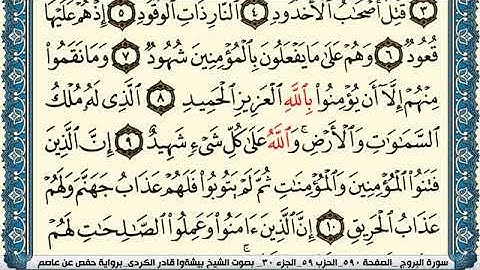 ٣ قُتِلَ أَصْحَٰبُ ٱلْأُخْدُودِ ٤ ٱلنَّارِ ذَاتِ ٱلْوَقُودِ ٥ إِذْ هُمْ عَلَيْهَا
قُعُودٌ ٦ وَهُمْ عَلَىٰ مَا يَفْعَلُونَ بِٱلْمُؤْمِنِينَ شُهُودٌ ٧ وَمَا نَقَمُوا۟
مِنْهُمْ إِلَّآ أَن يُؤْمِنُوا۟ بِٱللَّهِ ٱلْعَزِيزِ ٱلْحَمِيدِ ٨ ٱلَّذِى لَهُۥ مُلْكُ
ٱلسَّمَٰوَٰتِ وَٱلْأَرْضِ ۚ وَٱللَّهُ عَلَىٰ كُلِّ شَىْءٍ شَهِيدٌ ٩ إِنَّ ٱلَّذِينَ
فَتَنُوا۟ ٱلْمُؤْمِنِينَ وَٱلْمُؤْمِنَٰتِ ثُمَّ لَمْ يَتُوبُوا۟ فَلَهُمْ عَذَابُ جَهَنَّمَ وَلَهُمْ
عَذَابُ ٱلْحَرِيقِ ١٠ إِنَّ ٱلَّذِينَ ءَامَنُوا۟ وَعَمِلُوا۟ ٱلصَّٰلِحَٰتِ لَهُمْ
سورة البروج_الصفحة ٥٩٠_الحزب ٥٩_الجزء ٣٠_ بصوت الشيخ بيشةوا قادر الكردى_برواية حفص عن عاصم